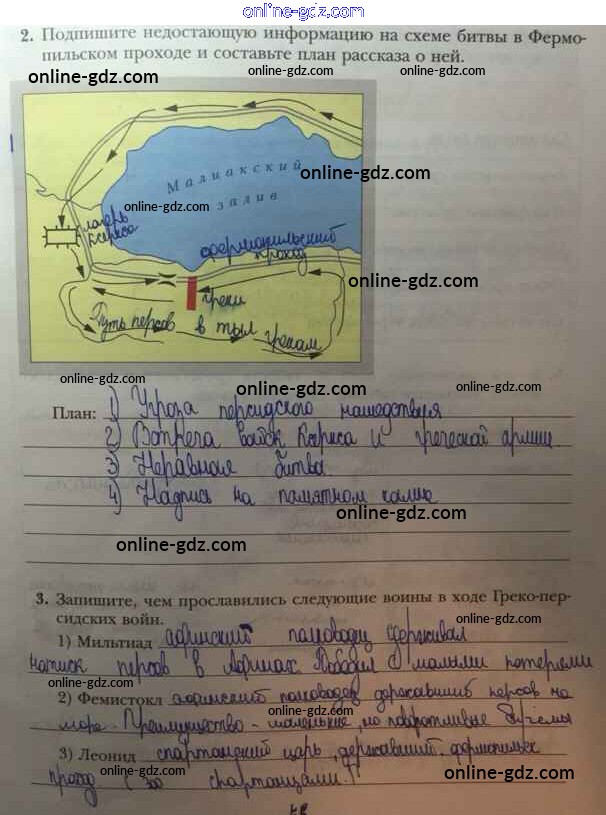 online-gdz.com
2. Подпишите недостающую информацию на схеме битвы в Фермо-
пильском проходе и составьте план рассказа о ней.
online-gdz.com online-gdz.com online-gdz.com
Малиакский
залив
online-gdz.com
online-gdz.com
лагерь
Ксеркса
фермопильский
проход
online-gdz.com
греки
Путь персов в тыл грекам
online-gdz.com online-gdz.com
online-gdz.com
План: 1) Угроза персидского нашествия
2) Встреча войск Ксеркса и греческой армии
3) Неравная битва
4) Надпись на памятном камне
online-gdz.com
online-gdz.com
3. Запишите, чем прославились следующие воины в ходе Греко-пер-
сидских войн.
online-gdz.com
1) Мильтиад афинский полководец сдерживал
натиск персов в Афинах. Победил с малыми потерями
2) Фемистокл афинский полководец державший персов на
online-gdz.com online-gdz.com
море. Преимущество - маленькие, но поворотливые
3) Леонид спартанский царь, державший фермопильск
проход (300 спартанцами)
online-gdz.com online-gdz.com